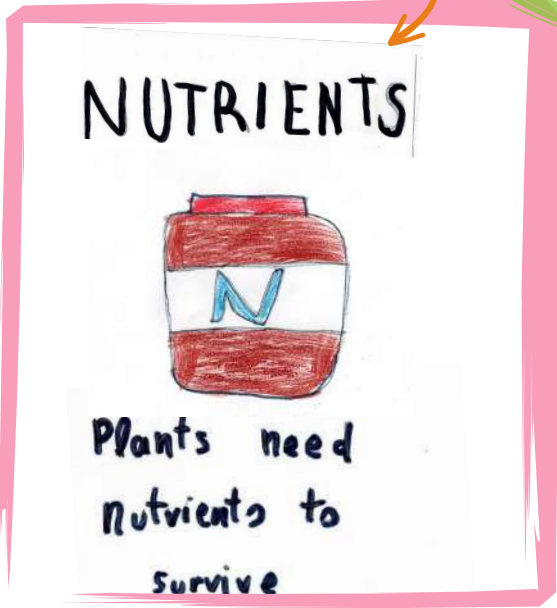 NUTRIENTS
N
Plants need
nutrients to
survive